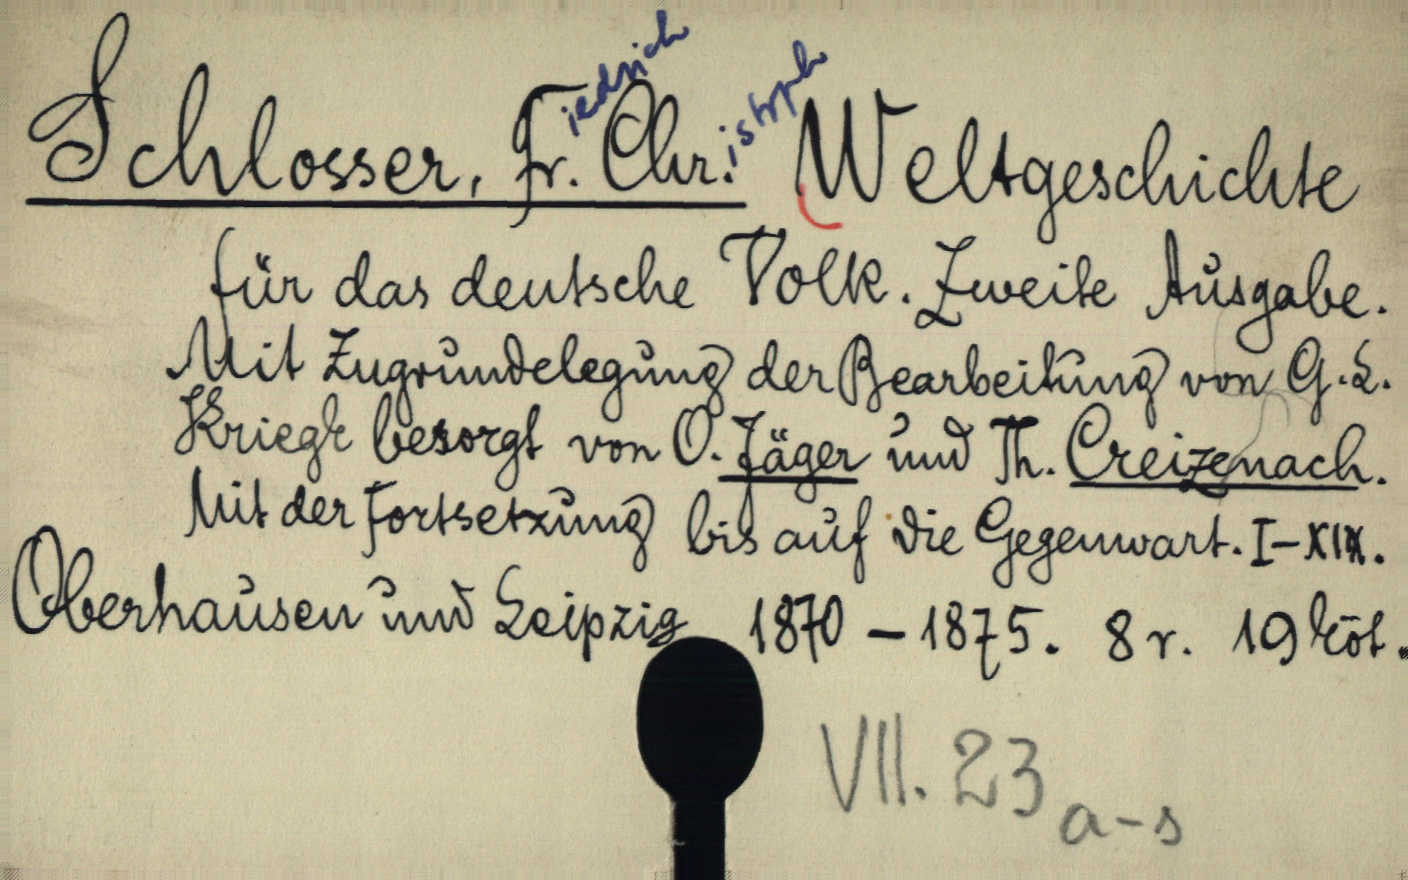 Schlosser, Friedrich Christoph Weltgeschichte
für das deutsche Volk. Zweite Ausgabe.
Mit Zugrundelegung der Bearbeitung von G. L.
Kriegk besorgt von O. Jäger und Th. Creizenach.
Mit der Fortsetzung bis auf die Gegenwart. I-XIX.
Oberhausen und Leipzig 1870 - 1875. 8 r. 19 köt.
VII. 23 a-s